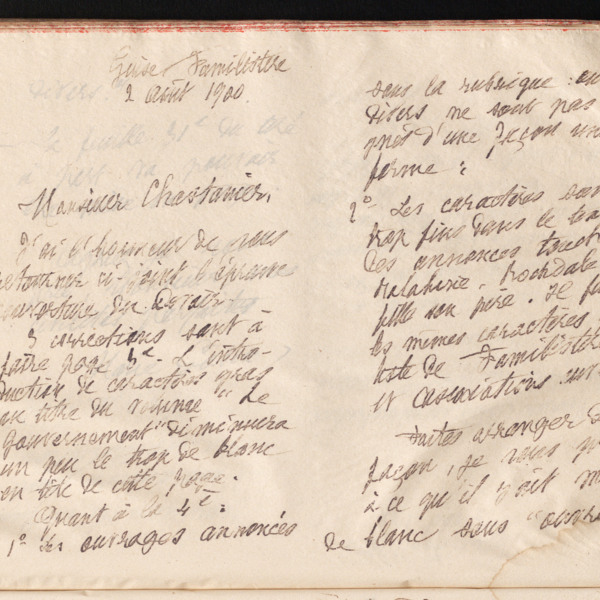 Guise Familistère
2 août 1900.
Monsieur Chastanier,
J'ai l'honneur de vous
retourner ci-joint l'épreuve
couverture du Devoir
3 corrections sont à
faire page 4e. L'intro-
duction de caractères gras
au titre du volume "Le
Gouvernement" diminuera
un peu le trop de blanc
en tête de cette page.
Quant à la 4e :
1º Les ouvrages annoncés
dans la rubrique : ou
divers ne sont pas
d'une façon uni
forme :
2º Les caractères sont
trop fins dans le
les annonces
Malaherie. Rochdale
fille son père. Je
les mêmes caractères
liste de Familistère
et Associations
Faites arranger
façon, je vous
à ce qu'il y ait
de blanc sous "ouvra